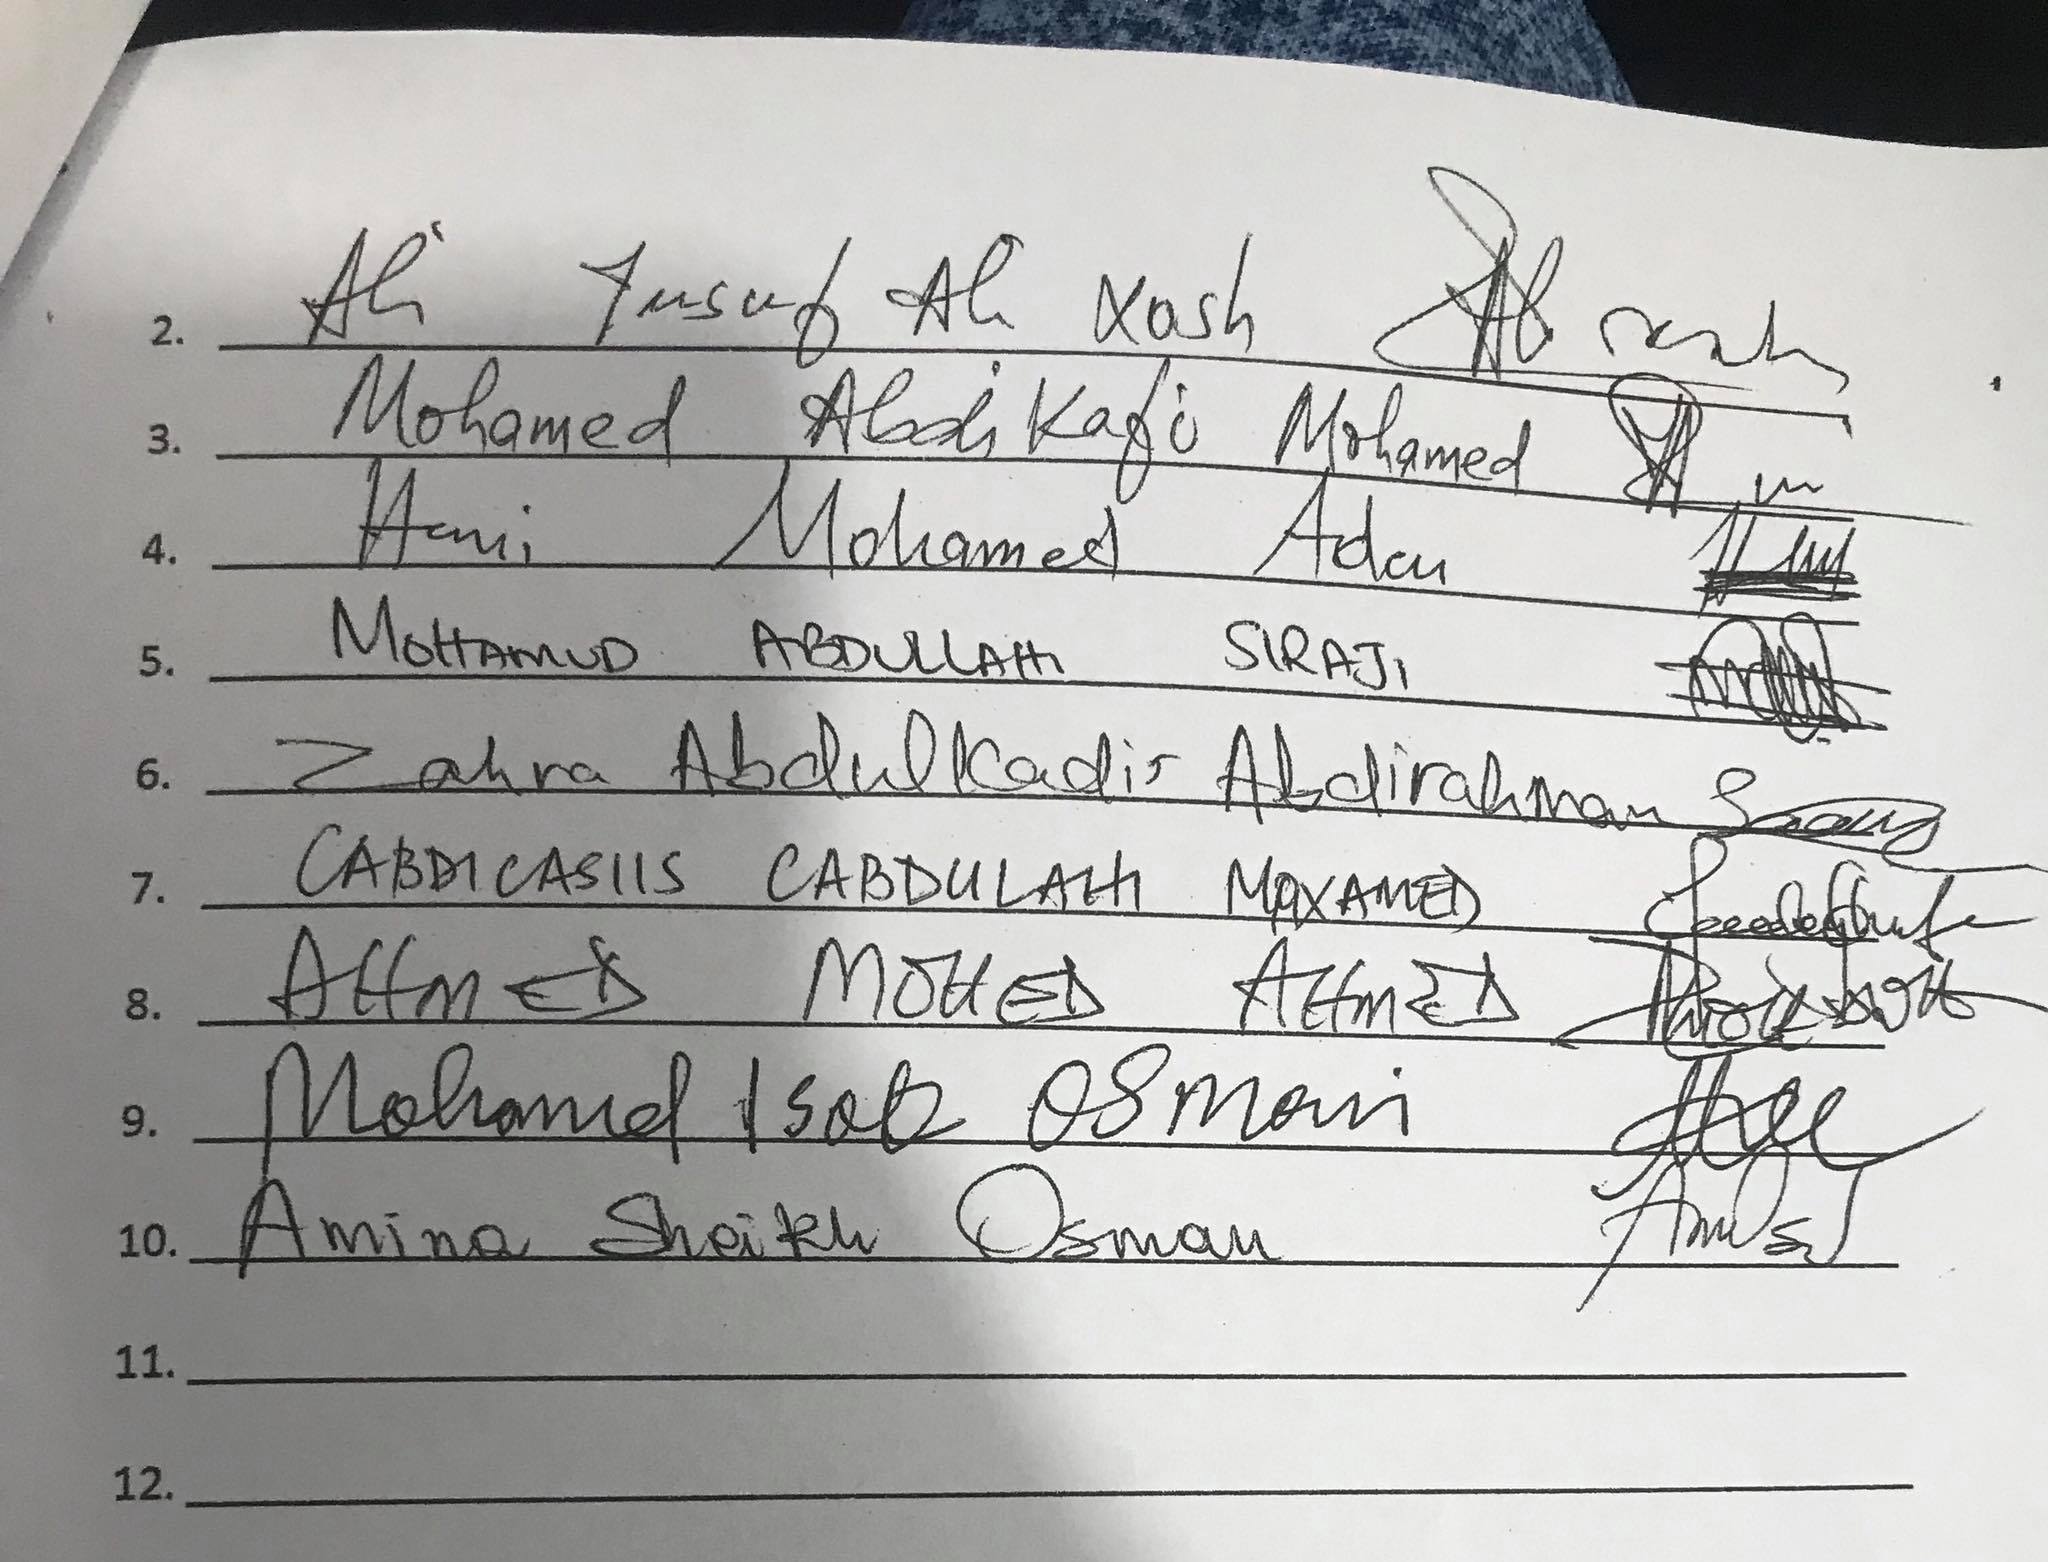 2. Ali Yusuf Ali Xash
3. Mohamed Abdikafi Mohamed
4. Hani Mohamed Adan
5. MOHAMUD ABDULLAHI SIRAJI
6. Zahra Abdulkadir Abdirahman
7. CABDICASIIS CABDULAHI MAXAMED
8. AHMED MOHED AHMED
9. Mohamed Isak Osman
10. Amina Sheikh Osman
11.
12.